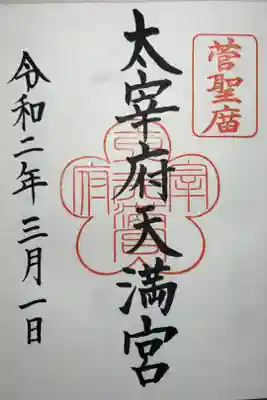 菅聖庿
太宰府天満宮
令和二年三月一日